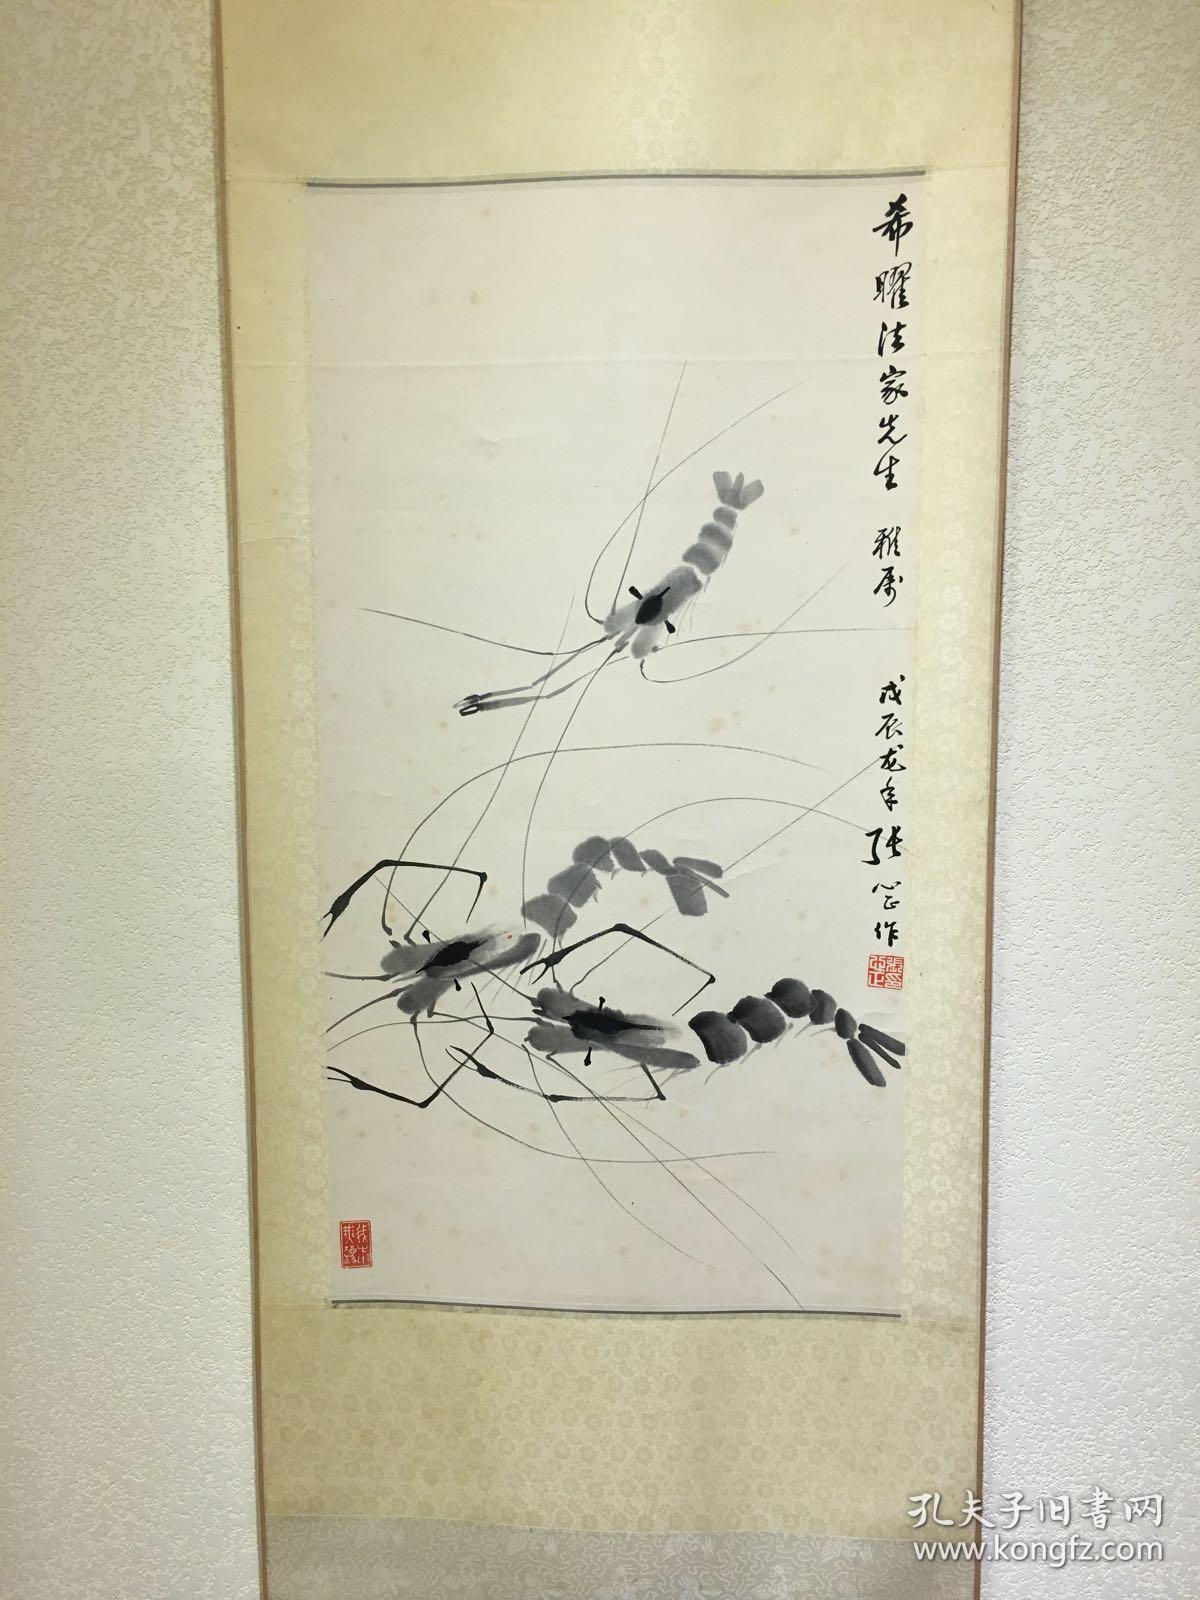 希曜法家先生 雅属
戊辰龙年 张心正作
孔夫子旧书网
www.kongfz.com